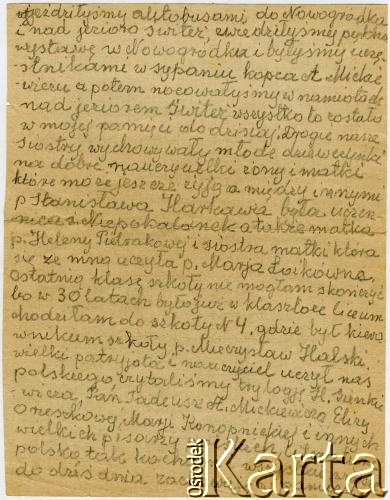 jeździłyśmy autobusami do Nowogródka
i nad jezioro Świteź, zwiedziłyśmy piękną
wystawę w Nowogródku i byłyśmy ucze
stnikami w sypaniu kopca A. Mickie
wicza a potem nocowałyśmy w namiotach
nad jeziorem Świteź wszystko to zostało
w mojej pamięci do dzisiaj. Drogie nasze
siostry wychowywały młode dziewczynki
na dobre nauczycielki żony i matki
które może jeszcze żyją a między innymi
p Stanisława Harkawa była uczen-
nica z Niepokalanek a także matka
p. Heleny Pietrakowej i siostra matki która
się ze mną uczyła p. Marja Łoikówna.
Ostatnią klasę szkoły nie mogłam skończyć
bo w 30 latach było już w klasztorze liceum
chodziłam do szkoły N 4, gdzie był kiero
wnikiem szkoły p. Mieczysław Halski
wielki patryjota i nauczyciel uczył nas
polskiego czytaliśmy trylogję H. Sienki
wicza, Pan Tadeusz A. Mickiewicza Elizy
Orzeszkowej Marji Konopnickiej i innych
wielkich pisarzy
polsko tak koch
do dziś dnia zac
Ośrodek Karta